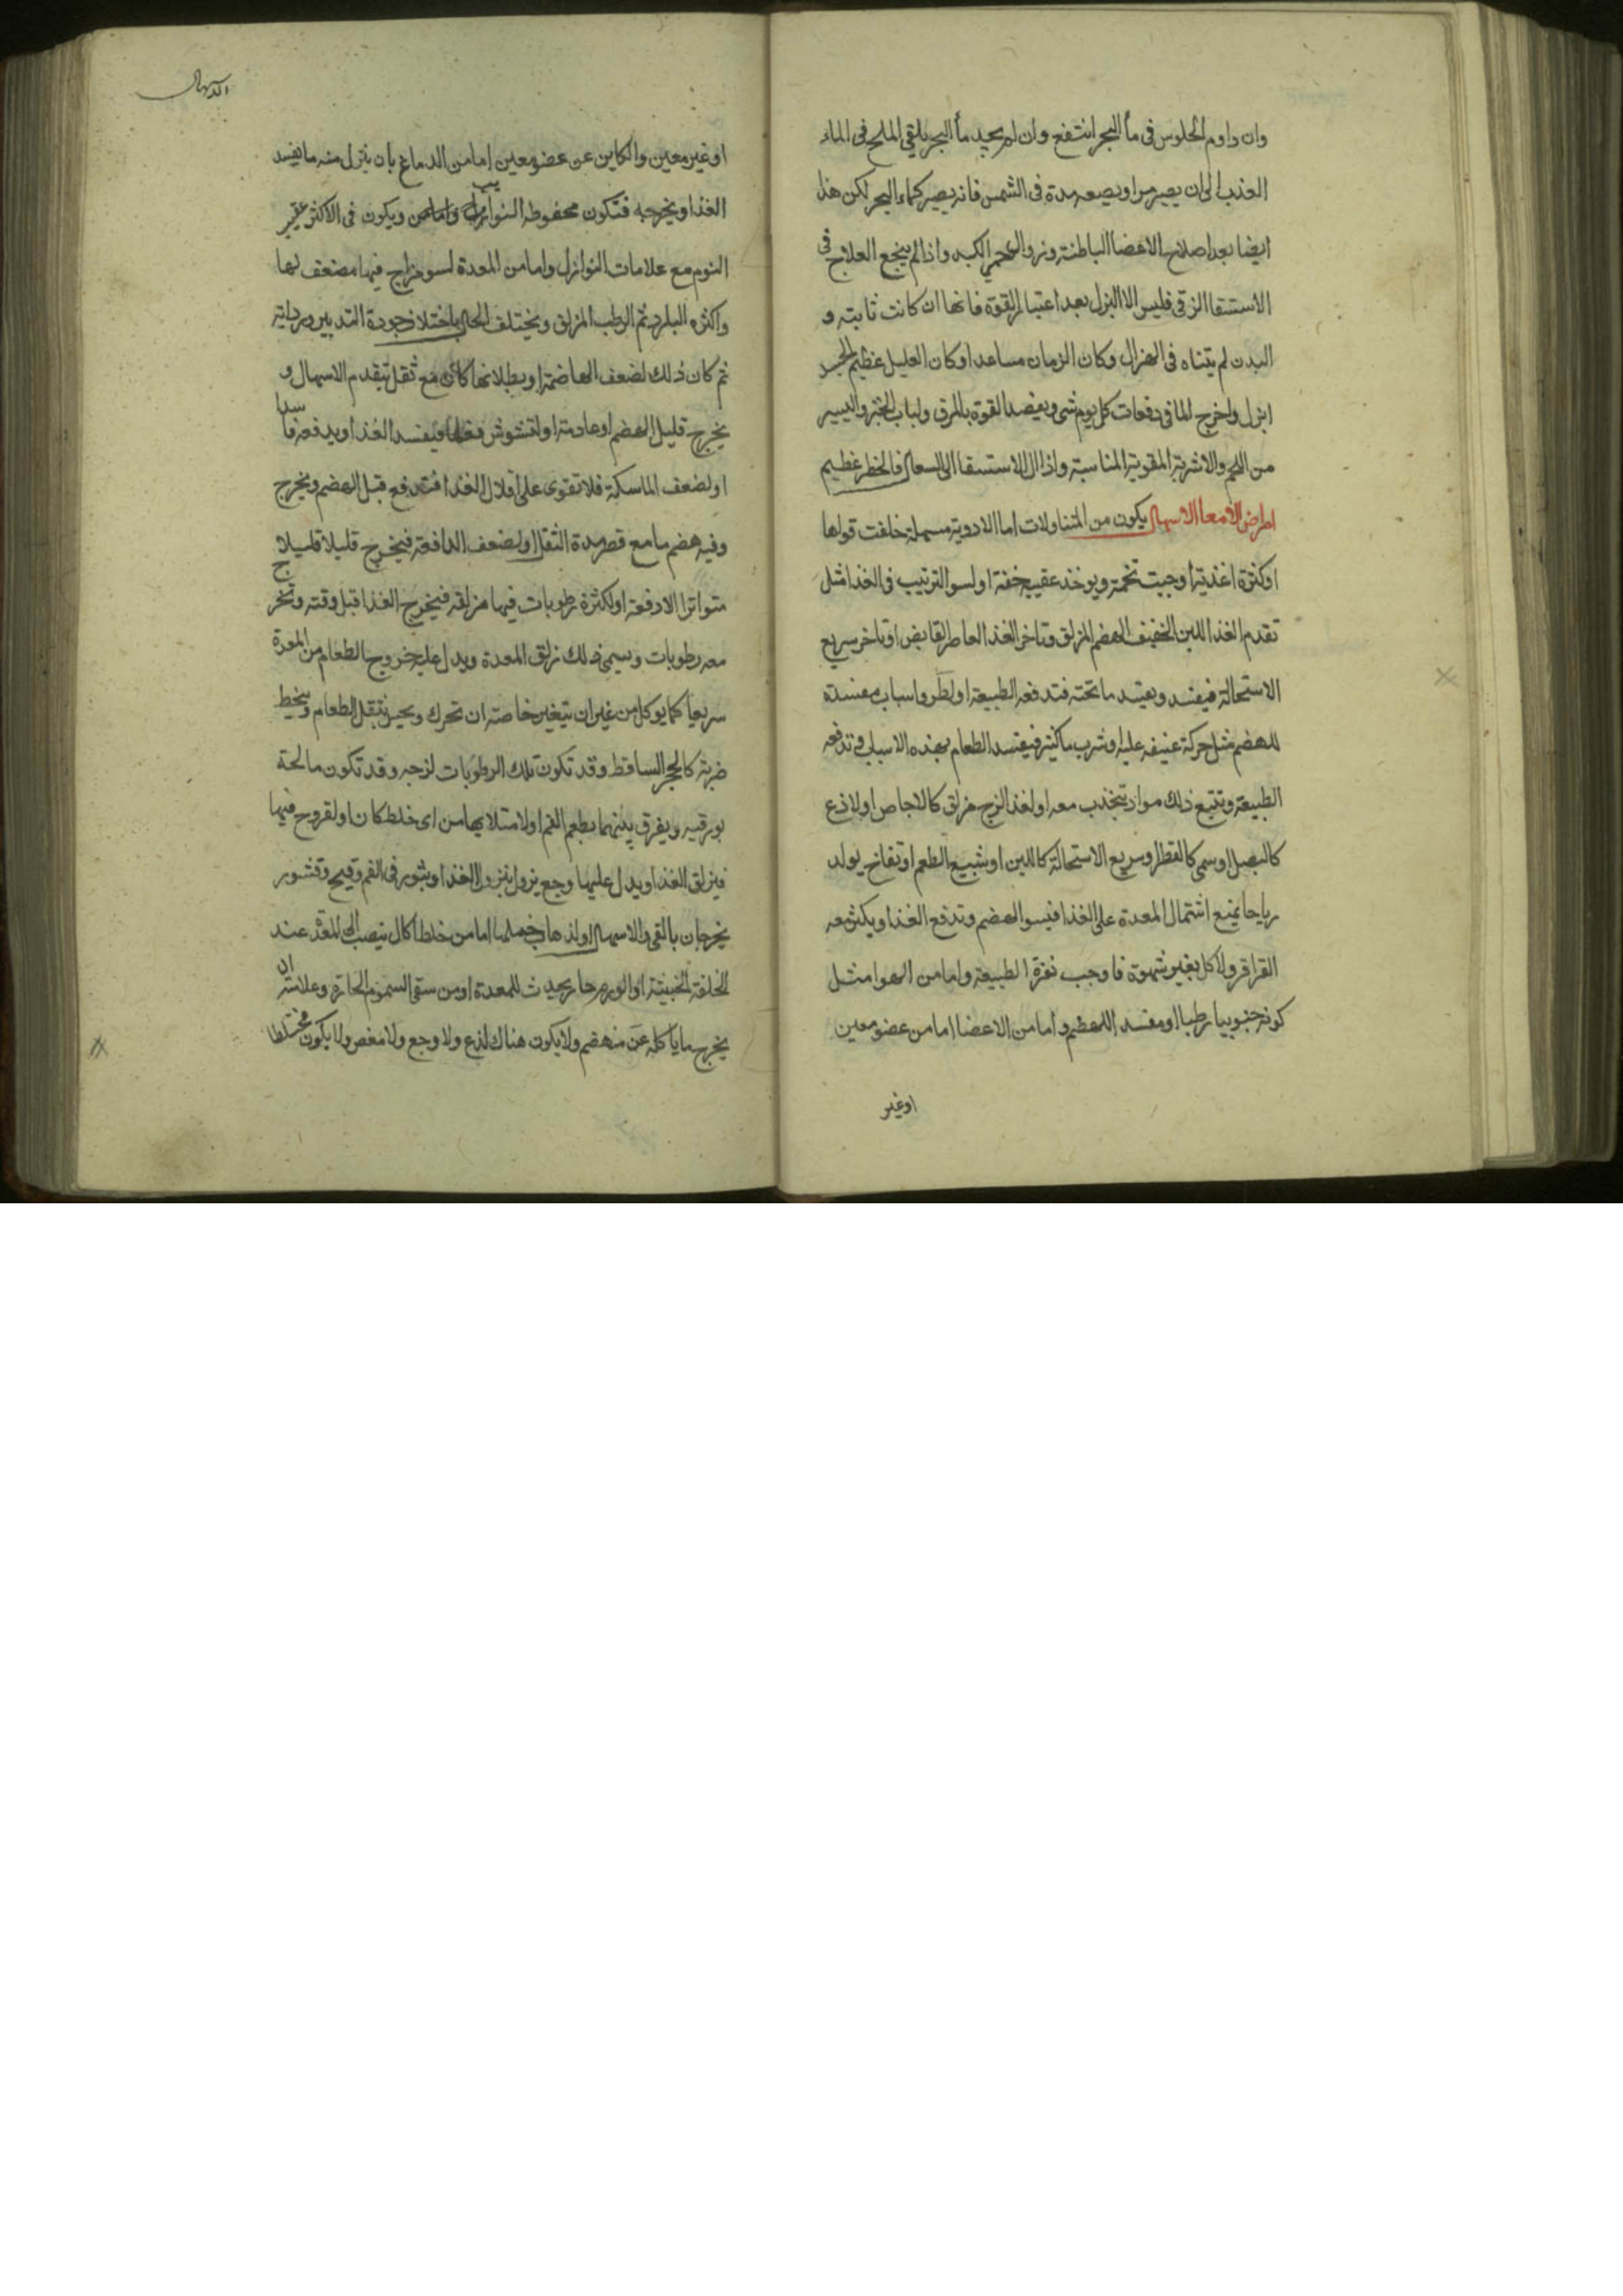 وان داوم الجلوس فى مأ البحر انتفع وان لم يجد مأ البحر يلقى الملح فى الماء
العذب الى ان يصير مرا ويضعه مدة فى الشمس فانه يصير كماء البحر لكن هذا
ايضا بعد اصلاح الاعضا الباطنة وزوال الكبد واذا لم ينجع العلاج فى
الاستسقا الزقى فليس الا البزل بعد اعتبار القوة فانها ان كانت ثابتة و
البدن لم يتناه فى الهزال وكان الزمان مساعدا وكان العليل عظيم
ابزل واخرج الما فى دفعات كل يوم شى ويعضد القوة بالمرق ولباب الخبز واليسير
من اللحم والاشربة المقوية المناسبة واذا ال الاستسقا الى السعال فالخطر عظيم
امراض الامعا الاسهال يكون من المتناولات اما الادوية مسهلة خلفت قواها
او كثرة اغذية اوجبت تخمة ويوخذ عقيبه خفة او لسوا الترتيب فى الغذا مثل
تقدم الغذا اللين الخفيف الهضم المزلق وتاخر الغذا العاصر القابض او تاخر سريع
الاستحالة فيفسد ويفسد ما تحته فتدفعه الطبيعة او لطرو اسباب مفسدة
للهضم مثل حركة عنيفة عليه او شرب ما كثير فيفسد الطعام بهذه الاسباب وتدفعه
الطبيعة ويتبع ذلك مواد تنجذب معه او لغذا لزج مزلق كالاجاص او لاذع
كالبصل او سمى كالفطر او سريع الاستحالة كاللبن او شبيع الطعم او نفاخ يولد
رياحا يمنع اشتمال المعدة على الغذا فيسوا الهضم وتدفع الغذا ويكثر معه
القراقر ولاكل بغير شهوة فاوجب نفرة الطبيعة واما من الهوا مثل
كونه جنوبيا رطبا او مفسد للهضم واما من الاعضا اما من عضو معين
اوغير
الاسهال
او غير معين والكاين عن عضو معين اما من الدماغ بان ينزل منه ما يفسد
الغذا ويخرجه فتكون محفوظة النوايب ويكون فى الاكثر عقيب
النوم مع علامات النوازل واما من المعدة لسو مزاج فيها مضعف لها
واكثره البارد ثم الرطب المزلق ويختلف الحال باختلاف جودة التدبير ورداته
ثم كان ذلك لضعف الهاضمة او بطلانها كان مع ثقل تقدم الاسهال و
يخرج قليل الهضم او عادمة او لتشوش فعلها فيفسد الغذا ويدفعه فاسدا
او لضعف الماسكة فلا تقوى على اقلال الغذا فتدفع قبل الهضم ويخرج
وفيه هضم ما مع قصر مدة الثقل او لضعف الدافعة فيخرج قليلا قليلا
متواترا لا دفعة او لكثرة رطوبات فيها مزلقة فيخرج الغذا قبل وقته وتخرج
معه رطوبات ويسمى ذلك زلق المعدة ويدل عليه خروج الطعام من المعدة
سريعا كما يوكل من غير ان يتغير خاصة ان تحرك ويحس بثقل الطعام وينحط
ضربة كالحجر الساقط وقد تكون تلك الرطوبات لزجة وقد تكون مالحة
بورقية ويفرق بينهما بطعم الفم او لامتلا بها من اى خلط كان او لقروح فيها
فيزلق الغذا ويدل عليها وجع يزول بنزول الغذا وبثور فى الفم وقيح وقشور
يخرجان بالقى والاسهال او لذهاب خملها اما من خلط اكال ينصب الى المعدة عند
الخلفة الخبيثة او الورم حار يحدث للمعدة او من سقى السموم الحارة وعلامته ان
يخرج ما ياكله غير منهضم ولا يكون هناك لذع ولا وجع ولا مغص ولا يكون مختلطا